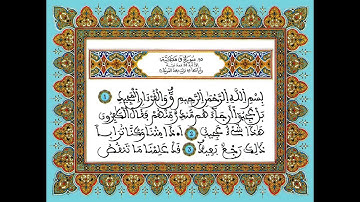 سورة ق مكية
بسم الله الرحمن الرحيم ق والقرءان المجيد
بل عجبوا أن جاءهم منذر منهم فقال الكفرون
هذا شيء عجيب أءذا متنا وكنا ترابا
ذلك رجع بعيد قد علمنا ما تنقص